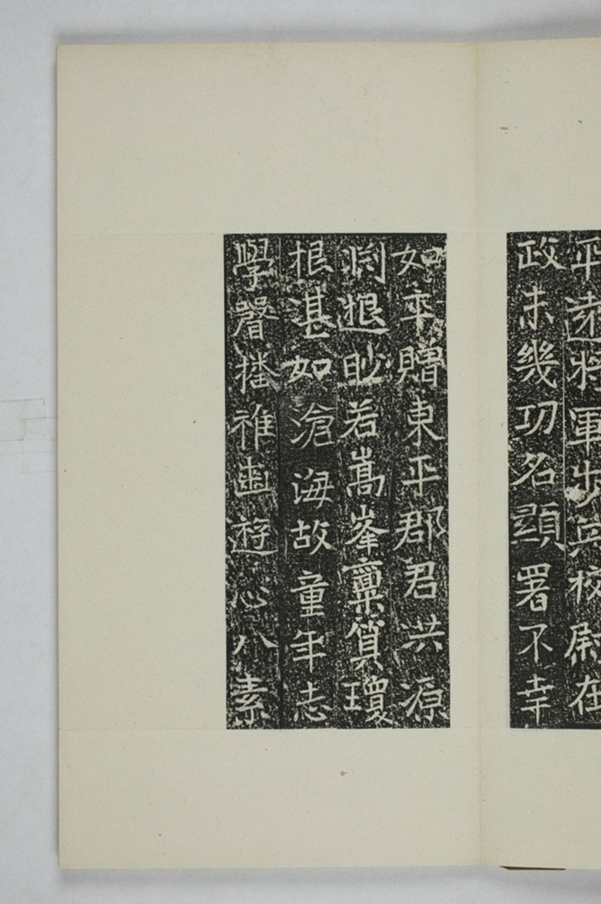 平遠將軍步兵校尉在
政未幾功名顯署不幸
如卒贈東平郡君洪源
渕眇若嵩峯稟質瓊
根湛如滄海故童年志
學聲播雅齒遊心八素